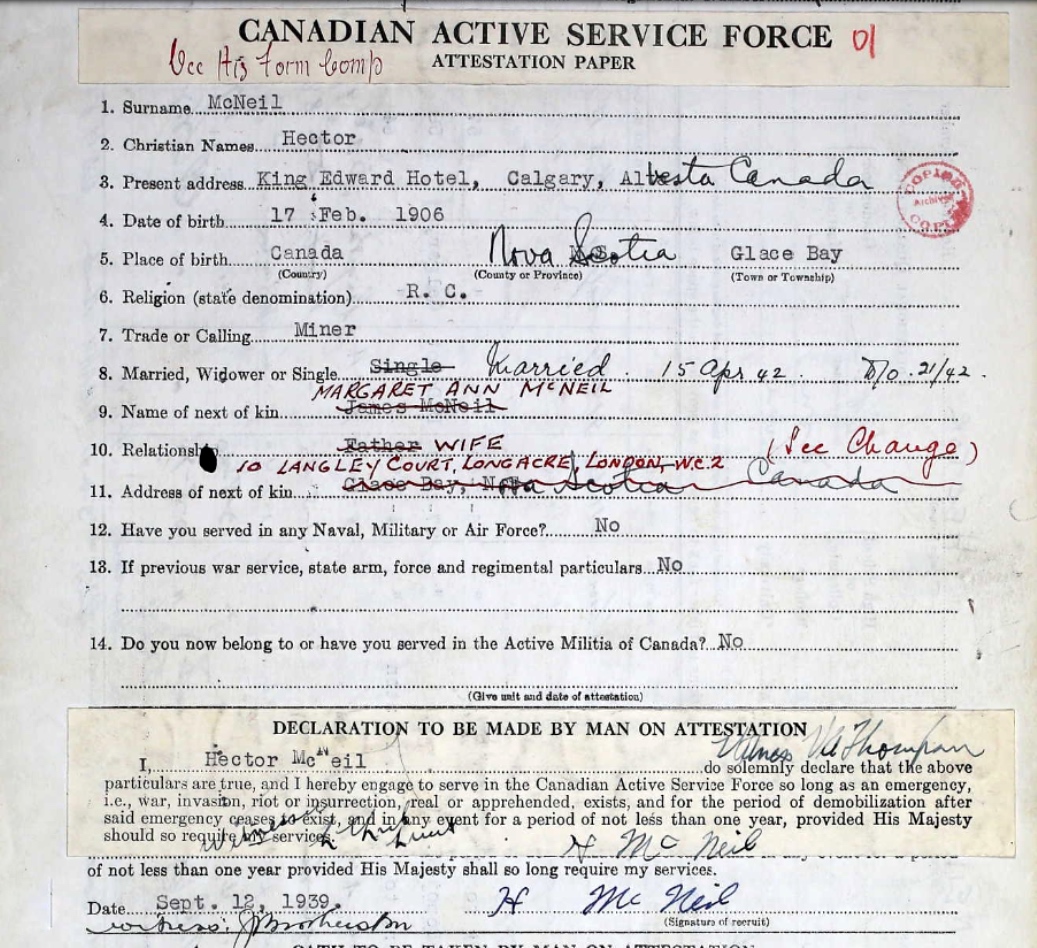 CANADIAN ACTIVE SERVICE FORCE 01
Occ His Form Comp ATTESTATION PAPER
1. Surname McNeil
2. Christian Names Hector
3. Present address King Edward Hotel, Calgary, Alberta Canada
4. Date of birth 17 Feb. 1906
5. Place of birth Canada Nova Scotia Glace Bay
(Country) (County or Province) (Town or Township)
COPIED
Archives
COPIED
6. Religion (state denomination) R. C.
7. Trade or Calling Miner
8. Married, Widower or Single Single Married. 15 Apr 42. D/O. 21/42.
MARGARET ANN McNEIL
9. Name of next of kin James McNeil
10. Relationship Father WIFE (See Change)
10 LANGLEY COURT, LONGACRE, LONDON, W.C.2
11. Address of next of kin Glace Bay, Nova Scotia Canada
12. Have you served in any Naval, Military or Air Force? No
13. If previous war service, state arm, force and regimental particulars No
14. Do you now belong to or have you served in the Active Militia of Canada? No
(Give unit and date of attestation)
DECLARATION TO BE MADE BY MAN ON ATTESTATION
Thompson
I, Hector McNeil do solemnly declare that the above
particulars are true, and I hereby engage to serve in the Canadian Active Service Force so long as an emergency,
i.e., war, invasion, riot or insurrection, real or apprehended, exists, and for the period of demobilization after
said emergency ceases to exist, and in any event for a period of not less than one year, provided His Majesty
should so require my services.
Witness
H McNeil
of not less than one year provided His Majesty shall so long require my services.
Date Sept. 12, 1939. H McNeil
witness: (Signature of recruit)
OATH TO BE TAKEN BY MAN ON ATTESTATION